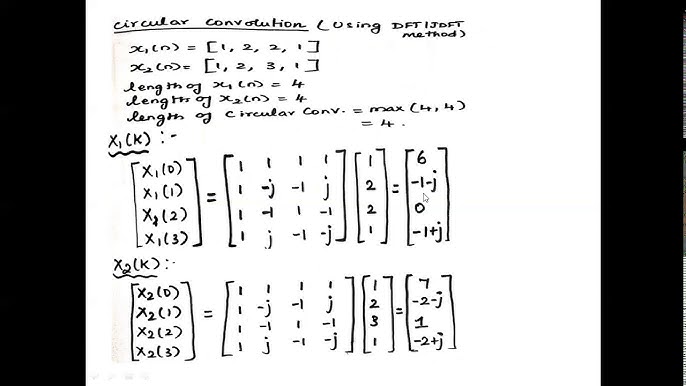 circular convolution (Using DFT/IDFT
method)
x₁(n) = [1, 2, 2, 1]
x₂(n)= [1, 2, 3, 1]
length of x₁(n) = 4
length of x₂(n) = 4
length of circular conv. = max (4, 4)
= 4.
X₁(K) :-
[X₁(0) X₁(1) X₁(2) X₁(3)] = [1 1 1 1; 1 -j -1 j; 1 -1 1 -1; 1 j -1 -j] [1 2 2 1] = [6 -1-j 0 -1+j]
X₂(K) :-
[X₂(0) X₂(1) X₂(2) X₂(3)] = [1 1 1 1; 1 -j -1 j; 1 -1 1 -1; 1 j -1 -j] [1 2 3 1] = [7 -2-j 1 -2+j]